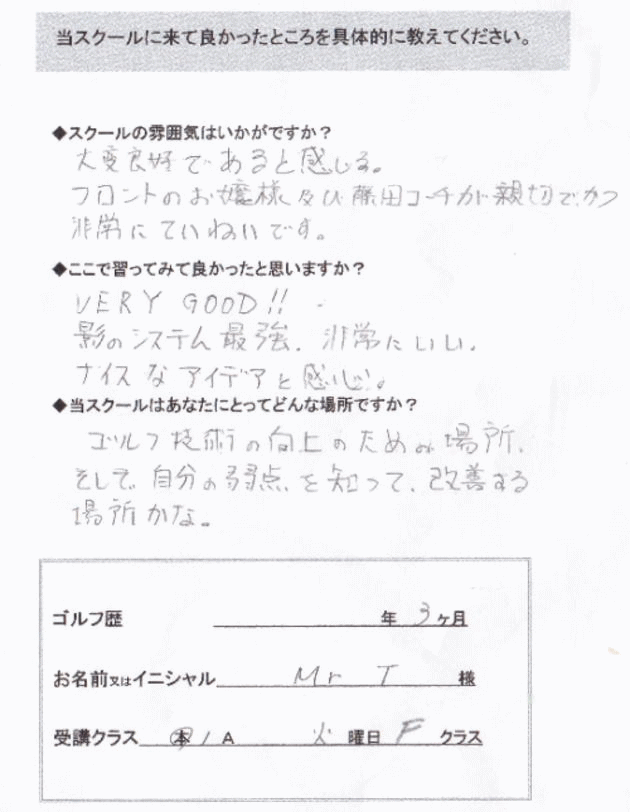 当スクールに来て良かったところを具体的に教えてください。
◆スクールの雰囲気はいかがですか？
大変良好であると感じる。
フロントのお嬢様及び藤田コーチが親切でかつ
非常にていねいです。
◆ここで習ってみて良かったと思いますか？
VERY GOOD!!
影のシステム最強、非常にいい、
ナイスなアイデアと感心。
◆当スクールはあなたにとってどんな場所ですか？
ゴルフ技術の向上のための場所、
そして、自分の弱点を知って、改善する
場所かな。
ゴルフ歴 年 3ヶ月
お名前又はイニシャル Mr T 様
受講クラス 本 / A 火 曜日 F クラス